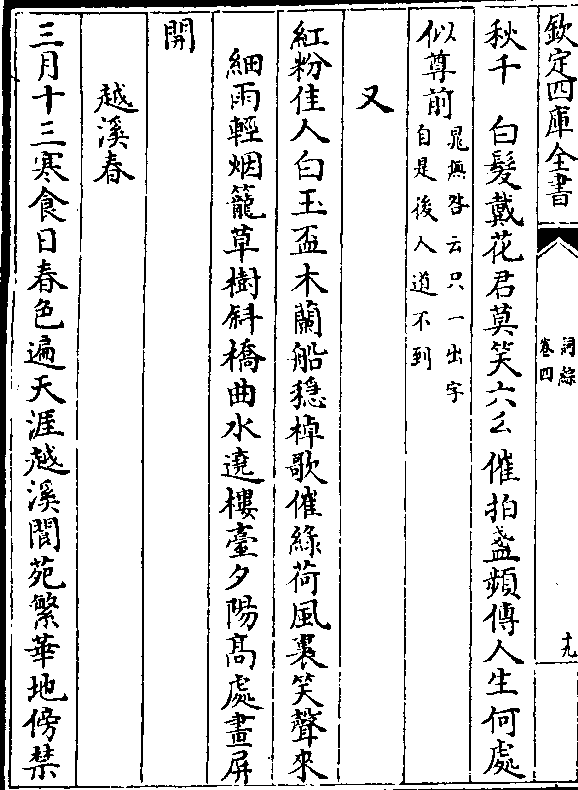 欽定四庫全書
詞綜
卷四
十九
秋千　白髮戴花君莫笑六么催拍盞頻傳人生何處
似尊前
晁無咎云只一出字
自是後人道不到
又
紅粉佳人白玉盃木蘭船穏棹歌催綠荷風裏笑聲來
細雨輕烟籠草樹斜橋曲水遶樓臺夕陽高處畫屏
開
越溪春
三月十三寒食日春色遍天涯越溪閬苑繁華地傍禁